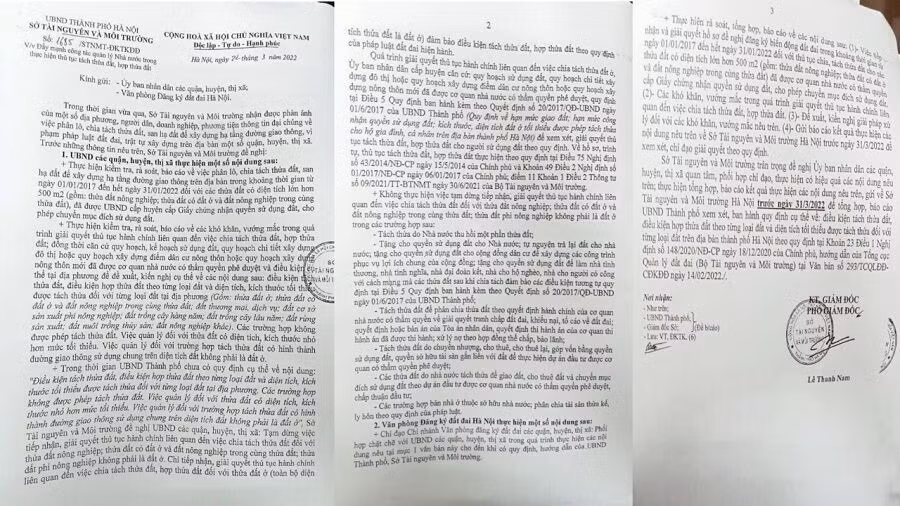 UBND THÀNH PHỐ HÀ NỘI
SỞ TÀI NGUYÊN VÀ MÔI TRƯỜNG
Số: 1685/STNMT-ĐKTKĐĐ
V/v Đẩy mạnh công tác quản lý Nhà nước trong
thực hiện thủ tục tách thửa đất, hợp thửa đất
CỘNG HOÀ XÃ HỘI CHỦ NGHĨA VIỆT NAM
Độc lập - Tự do - Hạnh phúc
Hà Nội, ngày 24 tháng 3 năm 2022
Kính gửi: - Ủy ban nhân dân các quận, huyện, thị xã;
- Văn phòng Đăng ký đất đai Hà Nội.
Trong thời gian vừa qua, Sở Tài nguyên và Môi trường nhận được phản ánh
của một số địa phương, người dân, doanh nghiệp, phương tiện thông tin đại chúng về
việc phân lô, chia tách thửa đất, san hạ đất để xây dựng hạ tầng đường giao thông, vi
phạm pháp luật đất đai, trật tự xây dựng trên địa bàn một số quận, huyện, thị xã.
Trước những thông tin nêu trên, Sở Tài nguyên và Môi trường đề nghị:
1. UBND các quận, huyện, thị xã thực hiện một số nội dung sau:
+ Thực hiện kiểm tra, rà soát, báo cáo về việc phân lô, chia tách thửa đất, san
hạ đất để xây dựng hạ tầng đường giao thông trên địa bàn trong khoảng thời gian từ
ngày 01/01/2017 đến hết ngày 31/01/2022 đối với các thửa đất có diện tích lớn hơn
500 m2 (gồm: thửa đất nông nghiệp; thửa đất có đất ở và đất nông nghiệp trong cùng
thửa đất), đã được UBND cấp huyện cấp Giấy chứng nhận quyền sử dụng đất, cho
phép chuyển mục đích sử dụng đất.
+ Thực hiện kiểm tra, rà soát, báo cáo về các khó khăn, vướng mắc trong quá
trình giải quyết thủ tục hành chính liên quan đến việc chia tách thửa đất, hợp thửa
đất; đồng thời căn cứ quy hoạch, kế hoạch sử dụng đất, quy hoạch chi tiết xây dựng
đô thị hoặc quy hoạch xây dựng điểm dân cư nông thôn hoặc quy hoạch xây dựng
nông thôn mới đã được cơ quan nhà nước có thẩm quyền phê duyệt và điều kiện
thể tại địa phương để đề xuất, kiến nghị cụ thể về các nội dung sau: điều kiện tách
thửa đất, điều kiện hợp thửa đất theo từng loại đất và diện tích, kích thước tối thiểu
được tách thửa đối với từng loại đất tại địa phương (Gồm: thửa đất ở; thửa đất có
đất ở và đất nông nghiệp trong cùng thửa đất; đất thương mại, dịch vụ; đất cơ sở
sản xuất phi nông nghiệp; đất trồng cây hàng năm; đất trồng cây lâu năm; đất rừng
sản xuất; đất nuôi trồng thủy sản; đất nông nghiệp khác). Các trường hợp không
được phép tách thửa đất. Việc quản lý đối với thửa đất có diện tích, kích thước nhỏ
hơn mức tối thiểu. Việc quản lý đối với trường hợp tách thửa đất có hình thành
đường giao thông sử dụng chung trên diện tích đất không phải là đất ở.
+ Trong thời gian UBND Thành phố chưa có quy định cụ thể về nội dung:
"Điều kiện tách thửa đất, điều kiện hợp thửa đất theo từng loại đất và diện tích, kích
thước tối thiểu được tách thửa đối với từng loại đất tại địa phương. Các trường hợp
không được phép tách thửa đất. Việc quản lý đối với thửa đất có diện tích, kích
thước nhỏ hơn mức tối thiểu. Việc quản lý đối với trường hợp tách thửa đất có hình
thành đường giao thông sử dụng chung trên diện tích đất không phải là đất ở", Sở
Tài nguyên và Môi trường đề nghị UBND các quận, huyện, thị xã: Tạm dừng việc
tiếp nhận, giải quyết thủ tục hành chính liên quan đến việc chia tách thửa đất đối với
thửa đất nông nghiệp; thửa đất có đất ở và đất nông nghiệp trong cùng thửa đất; thửa
đất phi nông nghiệp không phải là đất ở. Chỉ tiếp nhận, giải quyết thủ tục hành chính
liên quan đến việc chia tách thửa đất, hợp thửa đất đối với thửa đất ở (toàn bộ diện
2
tích thửa đất là đất ở) đảm bảo điều kiện tách thửa đất, hợp thửa đất theo quy định
của pháp luật đất đai hiện hành.
Quá trình giải quyết thủ tục hành chính liên quan đến việc chia tách thửa đất ở,
Ủy ban nhân dân cấp huyện căn cứ: quy hoạch sử dụng đất, quy hoạch chi tiết xây
dựng đô thị hoặc quy hoạch xây dựng điểm dân cư nông thôn hoặc quy hoạch xây
dựng nông thôn mới đã được cơ quan nhà nước có thẩm quyền phê duyệt, quy định
tại Điều 5 Quy định ban hành kèm theo Quyết định số 20/2017/QĐ-UBND ngày
01/6/2017 của UBND Thành phố (Quy định về hạn mức giao đất; hạn mức công
nhận quyền sử dụng đất; kích thước, diện tích đất ở tối thiểu được phép tách thửa
cho hộ gia đình, cá nhân trên địa bàn thành phố Hà Nội) để xem xét, giải quyết thủ
tục tách thửa đất, hợp thửa đất cho người sử dụng đất theo quy định. Về hồ sơ, trình
tự, thủ tục tách thửa đất, hợp thửa đất thực hiện theo quy định tại Điều 75 Nghị định
số 43/2014/NĐ-CP ngày 15/5/2014 của Chính phủ và Khoản 49 Điều 2 Nghị định số
01/2017/NĐ-CP ngày 06/01/2017 của Chính phủ; điểm 11 Khoản 1 Điều 2 Thông tư
số 09/2021/TT-BTNMT ngày 30/6/2021 của Bộ Tài nguyên và Môi trường.
+ Không thực hiện việc tạm dừng tiếp nhận, giải quyết thủ tục hành chính liên
quan đến việc chia tách thửa đất đối với thửa đất nông nghiệp; thửa đất có đất ở và
đất nông nghiệp trong cùng thửa đất; thửa đất phi nông nghiệp không phải là đất ở
trong các trường hợp sau:
- Tách thửa do Nhà nước thu hồi một phần thửa đất;
- Tặng cho quyền sử dụng đất cho Nhà nước; tự nguyện trả lại đất cho nhà
nước; tặng cho quyền sử dụng đất cho cộng đồng dân cư để xây dựng các công trình
phục vụ lợi ích chung của cộng đồng; tặng cho quyền sử dụng đất để làm nhà tình
thương, nhà tình nghĩa, nhà đại đoàn kết, nhà cho hộ nghèo, nhà cho người có công
với cách mạng mà các thửa đất sau khi chia tách đảm bảo các điều kiện tương tự quy
định tại Điều 5 Quy định ban hành kèm theo Quyết định số 20/2017/QĐ-UBND
ngày 01/6/2017 của UBND Thành phố;
- Tách thửa đất để phân chia thửa đất theo quyết định hành chính của cơ quan
nhà nước có thẩm quyền về giải quyết tranh chấp đất đai, khiếu nại, tố cáo về đất đai;
quyết định hoặc bản án của Tòa án nhân dân, quyết định thi hành án của cơ quan thi
hành án đã được thi hành; xử lý nợ theo hợp đồng thế chấp, bảo lãnh;
- Tách thửa đất do chuyển nhượng, cho thuê, cho thuê lại, góp vốn bằng quyền
sử dụng đất, quyền sở hữu tài sản gắn liền với đất để thực hiện dự án đầu tư được cơ
quan có thẩm quyền phê duyệt;
- Các thửa đất do nhà nước tách thửa để giao đất, cho thuê đất và chuyển mục
đích sử dụng đất theo dự án đầu tư được cơ quan nhà nước có thẩm quyền phê duyệt,
chấp thuận đầu tư;
- Các trường hợp bán nhà ở thuộc sở hữu nhà nước; phân chia tài sản thừa kế,
ly hôn theo quy định của pháp luật.
2. Văn phòng Đăng ký đất đai Hà Nội thực hiện một số nội dung sau:
+ Chỉ đạo Chi nhánh Văn phòng đăng ký đất đai các quận, huyện, thị xã: Phối
hợp chặt chẽ với UBND các quận, huyện, thị xã trong quá trình thực hiện các nội
dung nêu tại mục 1 văn bản này cho đến khi có quy định, hướng dẫn của UBND
Thành phố, Sở Tài nguyên và Môi trường.
3
+ Thực hiện rà soát, tổng hợp, báo cáo về các nội dung sau: (1)- Việc tiếp
nhận và giải quyết hồ sơ đề nghị đăng ký biến động đất đai trong khoảng thời gian từ
ngày 01/01/2017 đến hết ngày 31/01/2022 đối với thủ tục chia, tách thửa đất của các
thửa đất có diện tích lớn hơn 500 m2 (gồm: thửa đất nông nghiệp; thửa đất có đất ở
và đất nông nghiệp trong cùng thửa đất) đã được cơ quan nhà nước có thẩm quyền
cấp Giấy chứng nhận quyền sử dụng đất, cho phép chuyển mục đích sử dụng đất.
(2)- Các khó khăn, vướng mắc trong quá trình giải quyết thủ tục hành chính liên
quan đến việc chia tách thửa đất, hợp thửa đất. (3)- Đề xuất, kiến nghị giải pháp xử
lý đối với các khó khăn, vướng mắc nêu trên. (4)- Gửi báo cáo kết quả thực hiện các
nội dung nêu trên về Sở Tài nguyên và Môi trường Hà Nội trước ngày 31/3/2022 để
xem xét, chỉ đạo giải quyết theo quy định.
Sở Tài nguyên và Môi trường trân trọng đề nghị Ủy ban nhân dân các quận,
huyện, thị xã quan tâm, phối hợp chỉ đạo, thực hiện có hiệu quả các nội dung nêu
trên; thực hiện tổng hợp, báo cáo kết quả thực hiện các nội dung nêu trên, gửi về Sở
Tài nguyên và Môi trường Hà Nội trước ngày 31/3/2022 để tổng hợp, báo cáo
UBND Thành phố xem xét, ban hành quy định cụ thể về: điều kiện tách thửa đất,
điều kiện hợp thửa đất theo từng loại đất và diện tích tối thiểu được tách thửa đối với
từng loại đất trên địa bàn thành phố Hà Nội theo quy định tại Khoản 23 Điều 1 Nghị
định số 148/2020/NĐ-CP ngày 18/12/2020 của Chính phủ, hướng dẫn của Tổng cục
Quản lý đất đai (Bộ Tài nguyên và Môi trường) tại Văn bản số 293/TCQLĐĐ-
CĐKĐĐ ngày 14/02/2022./.
Nơi nhận:
- Như trên;
- UBND Thành phố;
- Giám đốc Sở;
(Để báo cáo)
- Lưu: VT, ĐKTK. (6)
KT. GIÁM ĐỐC
PHÓ GIÁM ĐỐC
SỞ
TÀI NGUYÊN
VÀ MÔI TRƯỜNG
Lê Thanh Nam